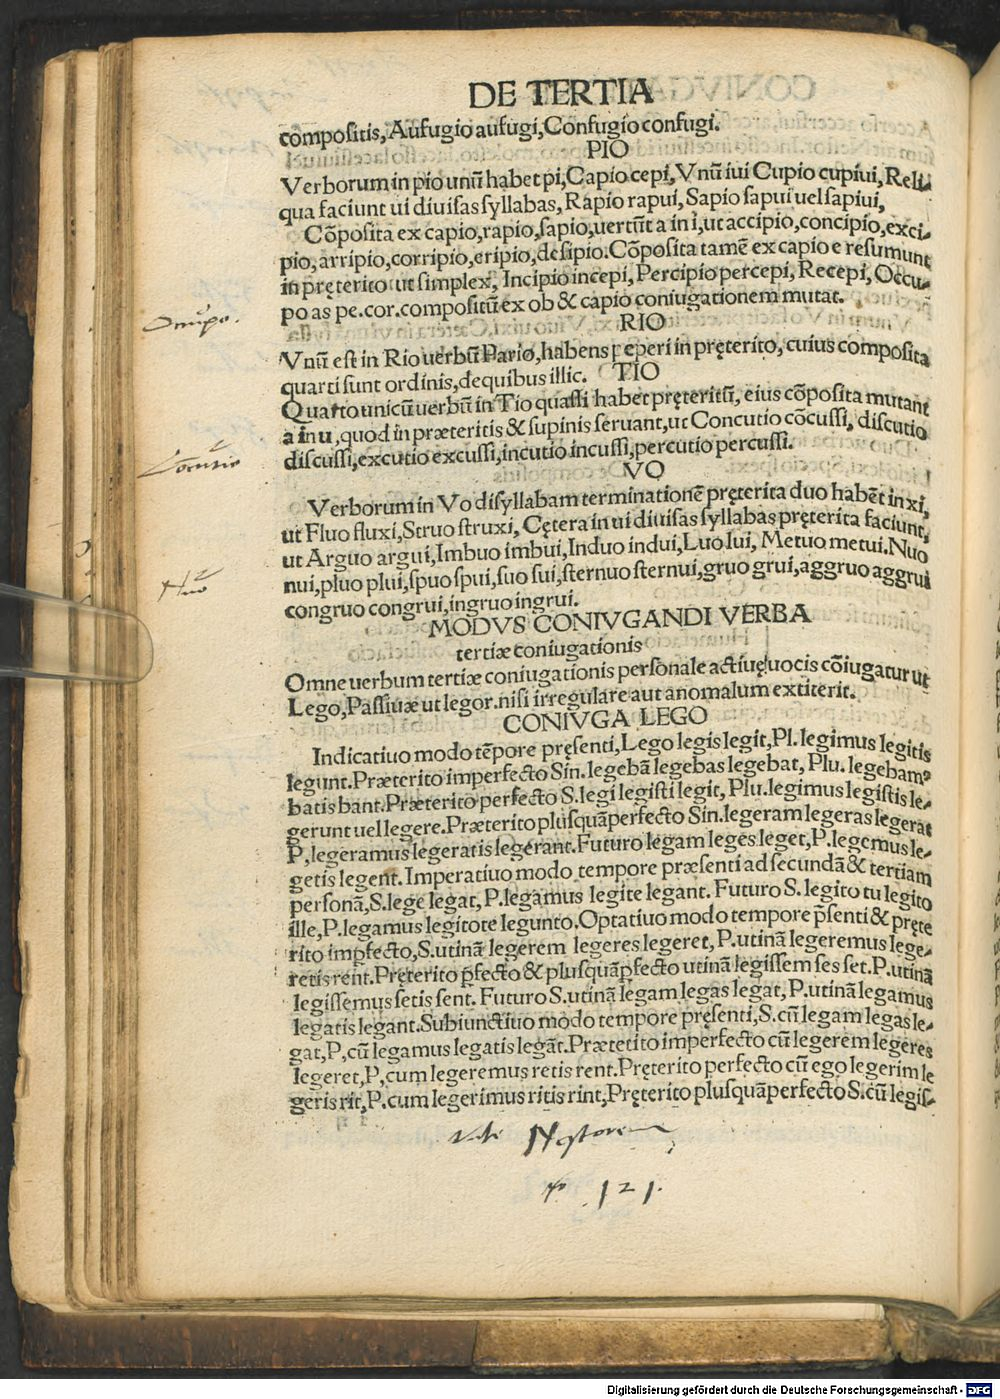 DE TERTIA
compositis, Aufugio aufugi, Confugio confugi.
PIO
Verborum in pio unũ habet pi, Capio cepi, Vnũ iui Cupio cupiui, Reli-
qua faciunt ui diuisas syllabas, Rapio rapui, Sapio sapui uel sapiui,
Cõposita ex capio, rapio, sapio, uertũt a in i, ut accipio, concipio, exci-
pio, arripio, corripio, eripio, desipio. Cõposita tamẽ ex capio e resumunt
in pręterito ut simplex, Incipio incepi, Percipio percepi, Recepi, Occu-
po as pe. cor. compositũ ex ob & capio coniugationem mutat.
Occupo.
RIO
Vnũ est in Rio uerbũ Pario, habens peperi in pręterito, cuius composita
quarti sunt ordinis, de quibus illic.
TIO
Quarto unicũ uerbũ in Tio quassi habet pręteritũ, eius cõposita mutant
a in u, quod in præteritis & supinis seruant, ut Concutio cõcussi, discutio
discussi, excutio excussi, incutio incussi, percutio percussi.
Concutio
VO
Verborum in Vo disyllabam terminationẽ pręterita duo habẽt in xi,
ut Fluo fluxi, Struo struxi, Cętera in ui diuisas syllabas pręterita faciunt,
ut Arguo argui, Imbuo imbui, Induo indui, Luo lui, Metuo metui. Nuo
nui, pluo plui, spuo spui, suo sui, sternuo sternui, gruo grui, aggruo aggrui
congruo congrui, ingruo ingrui.
Nuo
MODVS CONIVGANDI VERBA
tertiæ coniugationis
Omne uerbum tertiæ coniugationis personale actiuę uocis cõiugatur ut
Lego, Passiuæ ut legor. nisi irregulare aut anomalum extiterit.
CONIVGA LEGO
Indicatiuo modo tẽpore pręsenti, Lego legis legit, Pl. legimus legitis
legunt. Præterito imperfecto Sin. legebã legebas legebat, Plu. legebamꝰ
batis bant. Præterito perfecto S. legi legisti legit, Plu. legimus legistis le-
gerunt uel legere. Præterito plusquãperfecto Sin. legeram legeras legerat
P, legeramus legeratis legerant. Futuro legam leges leget, P. legemus le-
getis legent. Imperatiuo modo tempore præsenti ad secundã & tertiam
personã, S. lege legat, P. legamus legite legant. Futuro S. legito tu legito
ille, P. legamus legitote legunto. Optatiuo modo tempore p̃senti & pręte
rito imp̱fecto, S. utinã legerem legeres legeret, P. utinã legeremus lege-
retis rent. Pręterito p̱fecto & plusquãp̱fecto utinã legissem ses set. P. utinã
legissemus setis sent. Futuro S. utinã legam legas legat, P. utinã legamus
legatis legant. Subiunctiuo modo tempore pręsenti, S. cũ legam legas le-
gat, P, cũ legamus legatis legãt. Prætetito imperfecto cũ legerem legeres
legeret, P, cum legeremus retis rent. Pręterito perfecto cũ ego legerim le
geris rit, P. cum legerimus ritis rint, Pręterito plusquãperfecto S. cũ legis-
Vide Nestorem
121.
Digitalisierung gefördert durch die Deutsche Forschungsgemeinschaft - DFG